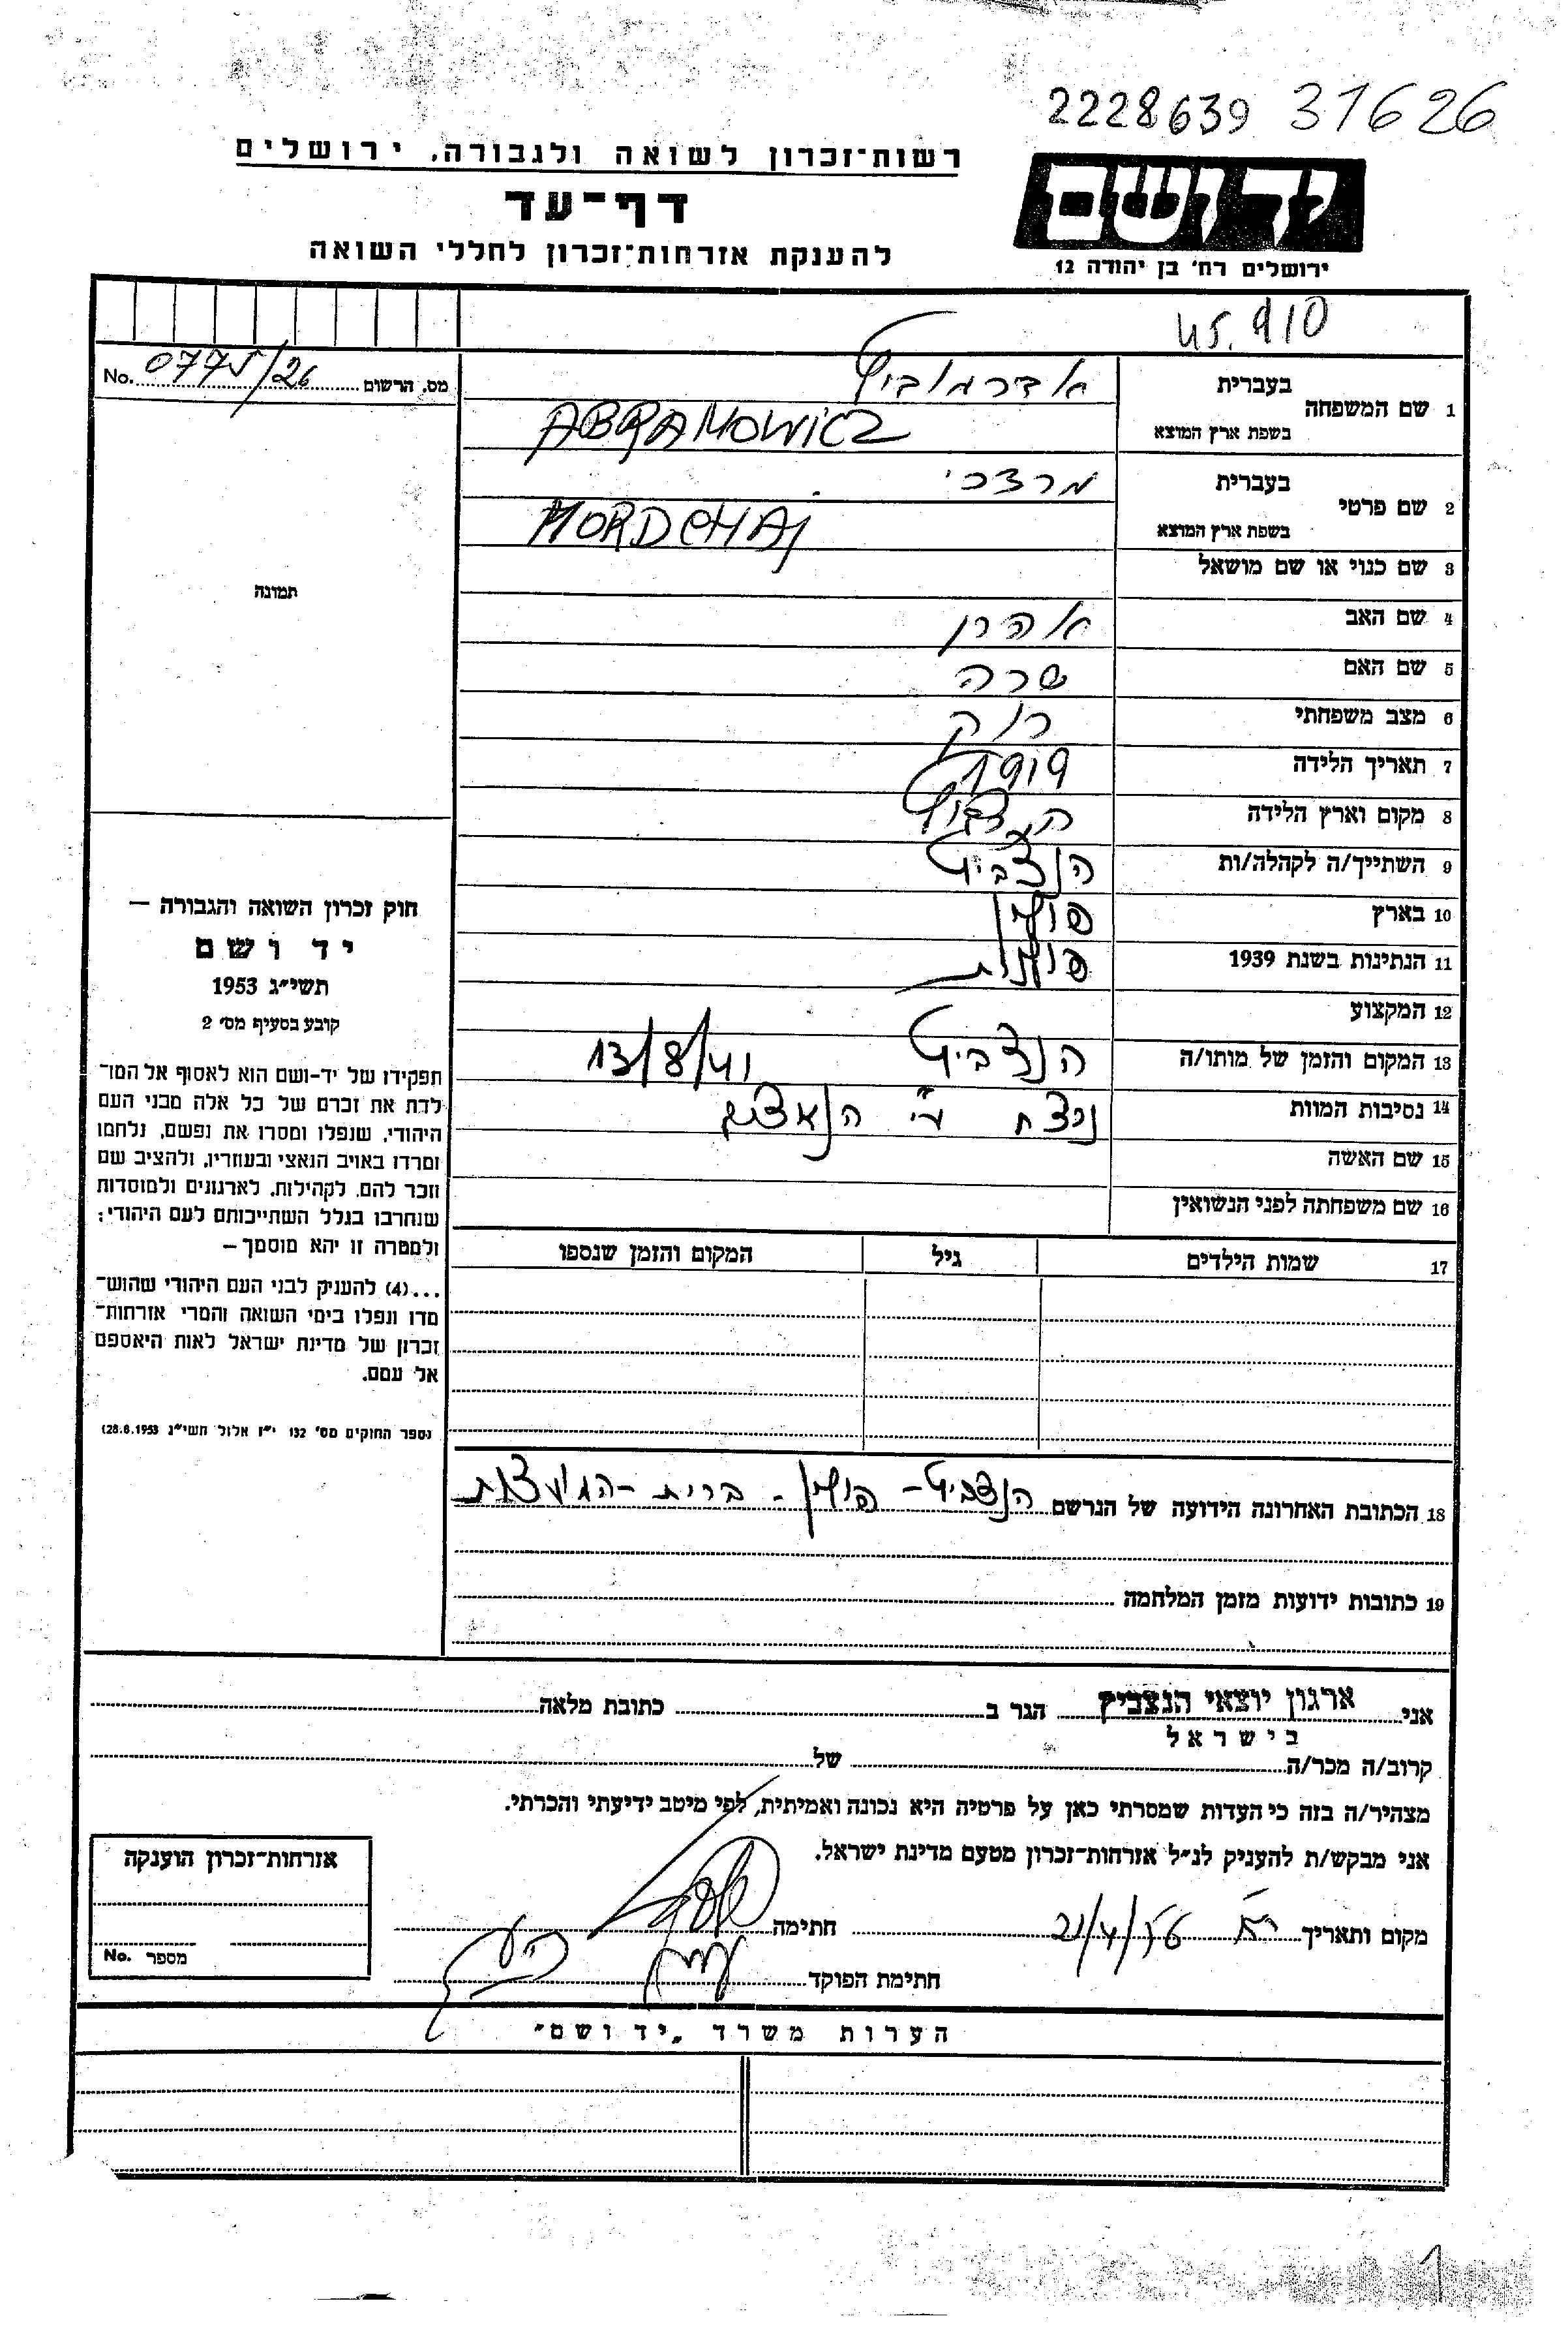 2228639 31626
רשות־זכרון לשואה ולגבורה, ירושלים
דף־עד
להענקת אזרחות־זכרון לחללי השואה
יד ושם
ירושלים רח' בן יהודה 12
מס. הרשום No. 0775/26
תמונה
1 שם המשפחה
בעברית אברמוביץ
בשפת ארץ המוצא ABRAMOWICZ
2 שם פרטי
בעברית מרדכי
בשפת ארץ המוצא MORDCHAJ
3 שם כנוי או שם מושאל
4 שם האב אהרן
5 שם האם שרה
6 מצב משפחתי רוק
7 תאריך הלידה 1919
8 מקום וארץ הלידה הנצביץ
9 השתייך/ה לקהלה/ות הנצביץ
10 בארץ פולין
11 הנתינות בשנת 1939 פולנית
12 המקצוע
13 המקום והזמן של מותו/ה הנצביץ 13/8/41
14 נסיבות המוות נרצח ע"י הנאצים
15 שם האשה
16 שם משפחתה לפני הנשואין
17 שמות הילדים גיל המקום והזמן שנספו
חוק זכרון השואה והגבורה —
יד ושם
תשי"ג 1953
קובע בסעיף מס' 2
תפקידו של יד-ושם הוא לאסוף אל המו־
לדת את זכרם של כל אלה מבני העם
היהודי, שנפלו ומסרו את נפשם, נלחמו
ומרדו באויב הנאצי ובעוזריו, ולהציב שם
וזכר להם, לקהילות, לארגונים ולמוסדות
שנחרבו בגלל השתייכותם לעם היהודי;
ולמטרה זו יהא מוסמך —
...(4) להעניק לבני העם היהודי שהוש־
מדו ונפלו בימי השואה והמרי אזרחות־
זכרון של מדינת ישראל לאות היאספם
אל עמם.
(ספר החוקים מס' 132 י"ז אלול תשי"ג 28.8.1953)
18 הכתובת האחרונה הידועה של הנרשם הנצביץ - פולין - ברית-המועצות
19 כתובות ידועות מזמן המלחמה
אני ארגון יוצאי הנצביץ הגר ב כתובת מלאה
בישראל
קרוב/ה מכר/ה של
מצהיר/ה בזה כי העדות שמסרתי כאן על פרטיה היא נכונה ואמיתית, לפי מיטב ידיעתי והכרתי.
אני מבקש/ת להעניק לנ"ל אזרחות־זכרון מטעם מדינת ישראל.
מקום ותאריך 21/4/56 חתימה
חתימת הפוקד
אזרחות־זכרון הוענקה
מספר No.
הערות משרד "יד ושם"
1